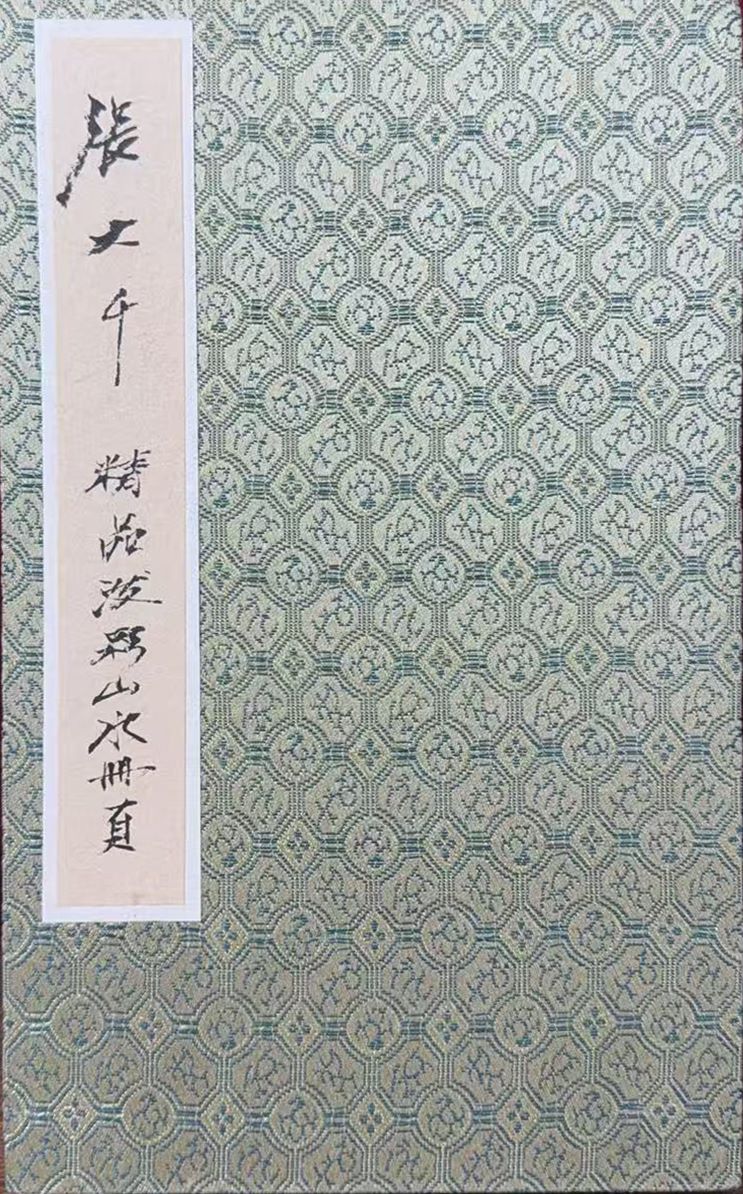 張大千精品潑彩山水册頁